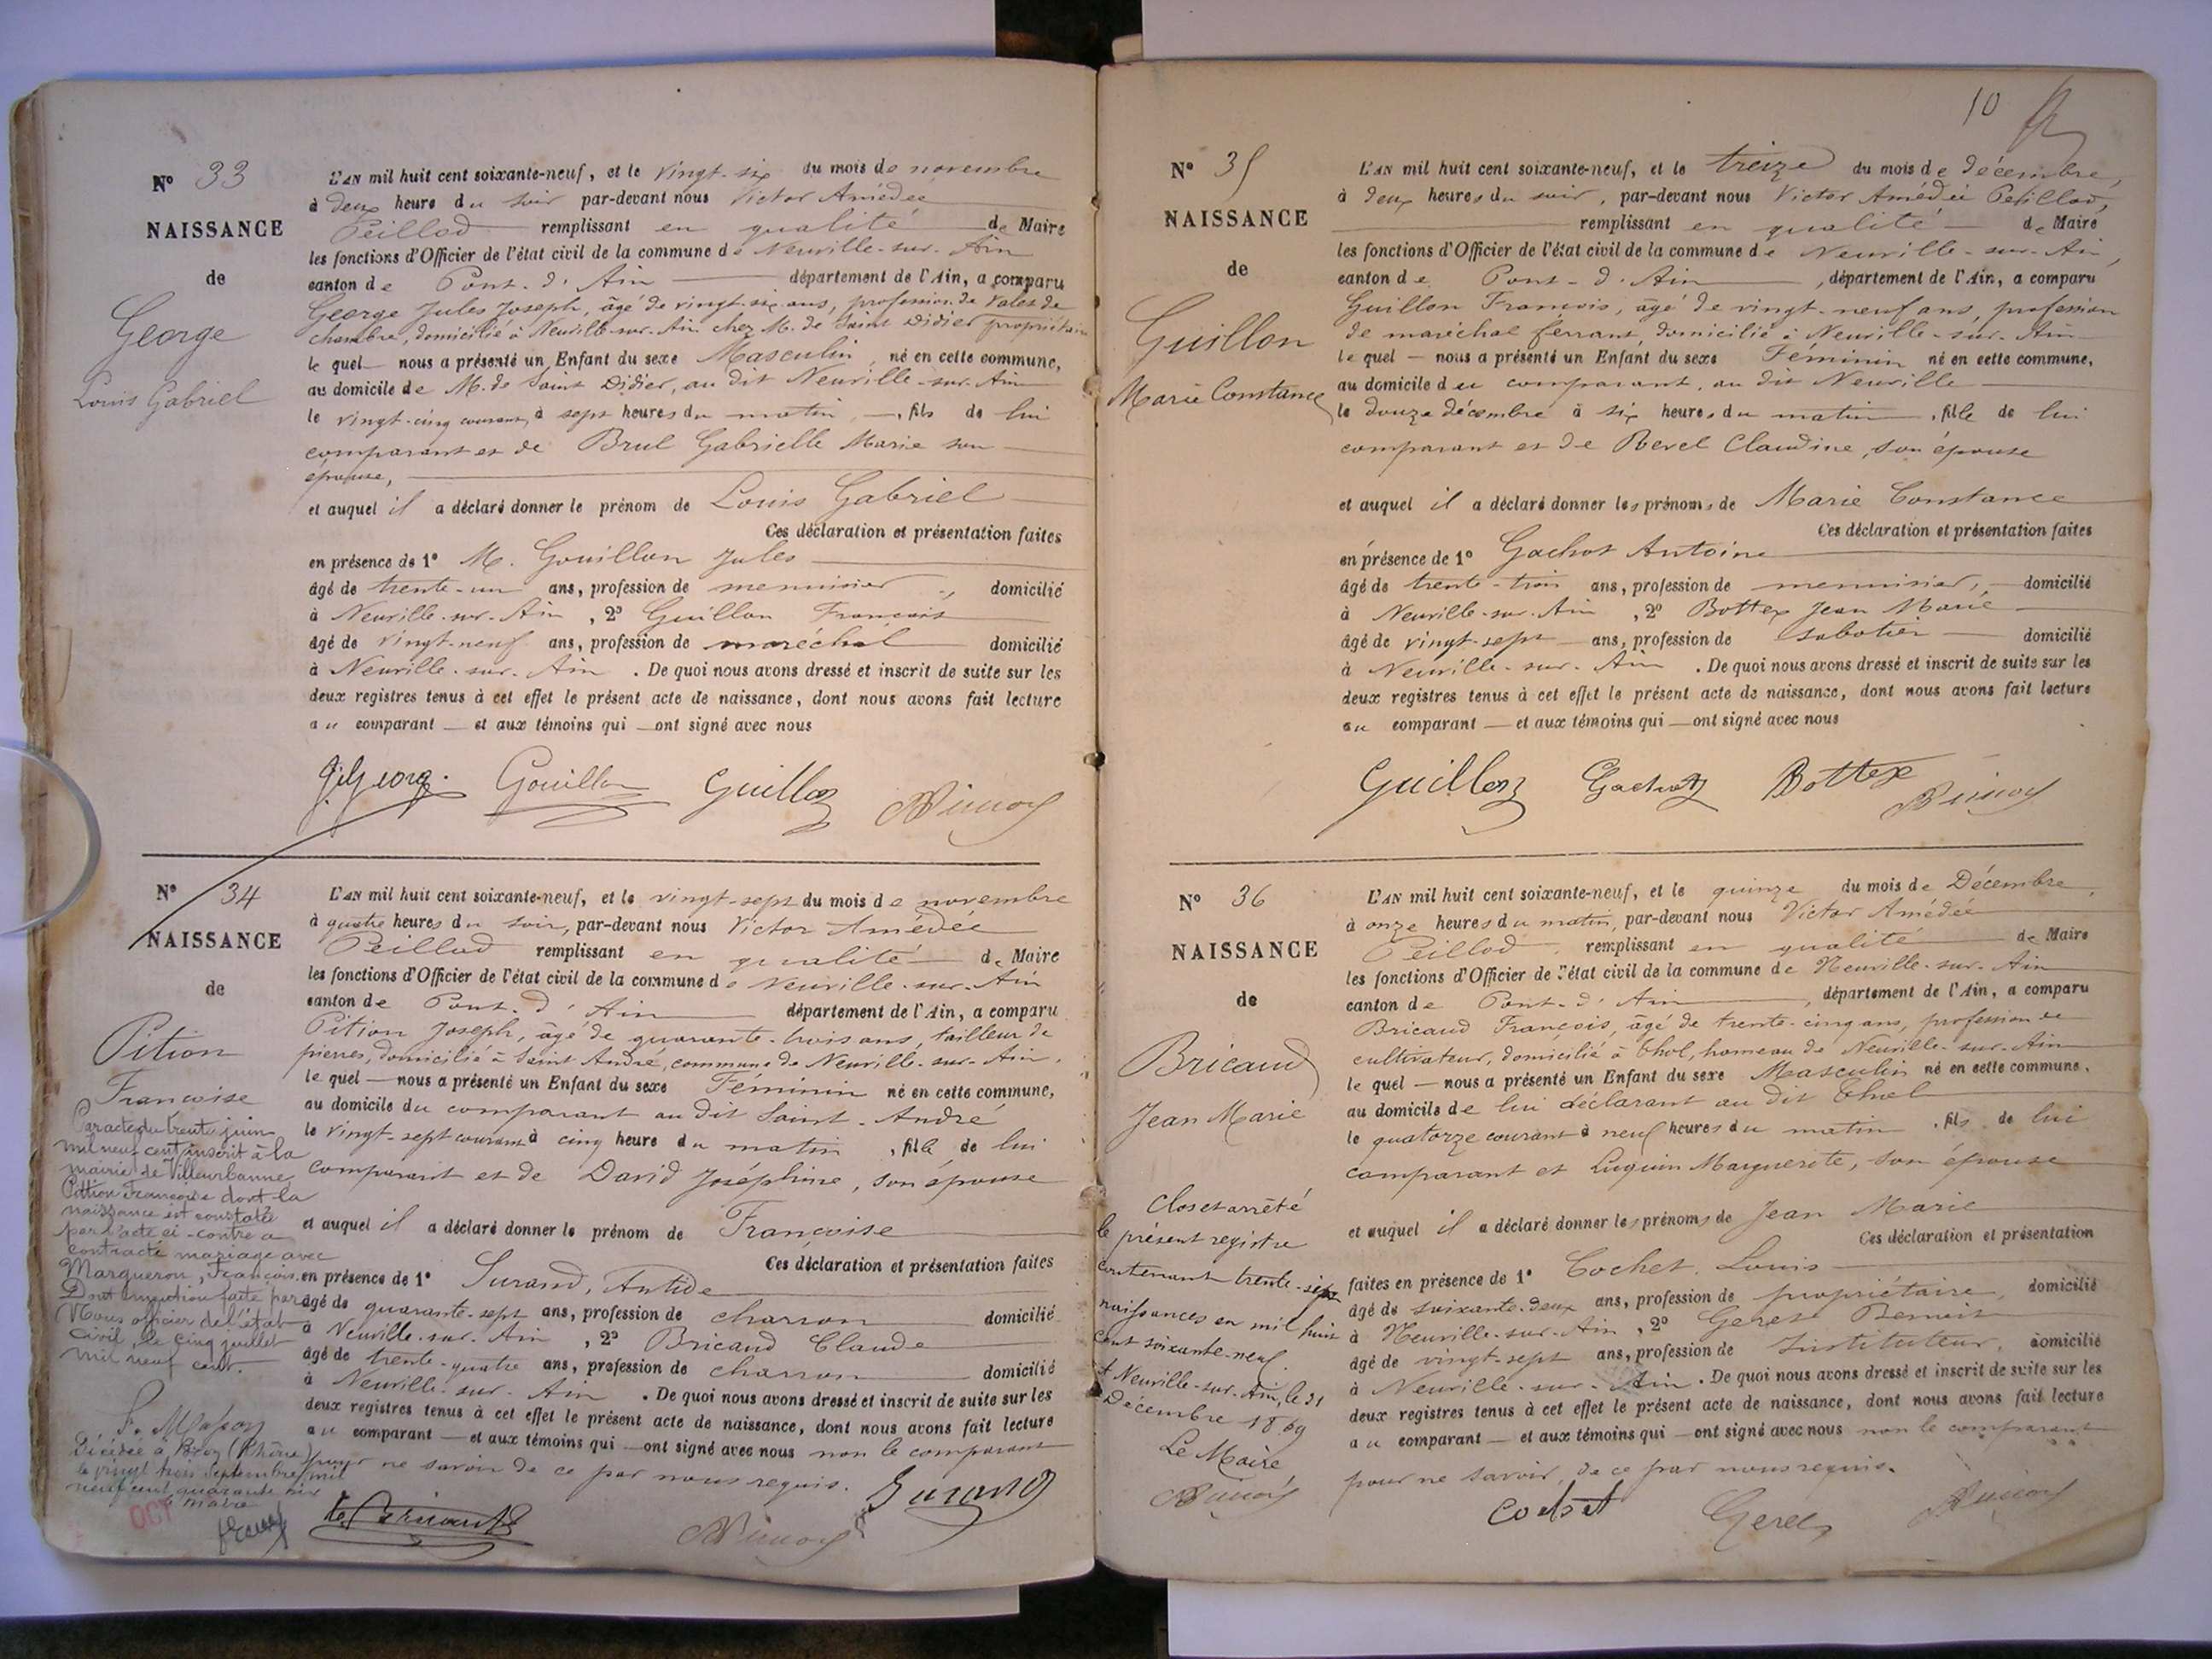 N° 33
NAISSANCE
de
George
Louis Gabriel
L'AN mil huit cent soixante-neuf, et le vingt-six du mois de novembre
à deux heure du soir par-devant nous Victor Amédée
Peillod remplissant en qualité de Maire
les fonctions d'Officier de l'état civil de la commune de Neuville-sur-Ain
canton de Pont-d'Ain département de l'Ain, a comparu
George Jules Joseph, âgé de vingt-six ans, profession de valet de
chambre, domicilié à Neuville-sur-Ain chez M. de Saint Didier propriétaire
le quel nous a présenté un Enfant du sexe Masculin, né en cette commune,
au domicile de M. de Saint Didier, au dit Neuville-sur-Ain
le vingt-cinq courant, à sept heures du matin, fils de lui
comparant et de Brul Gabrielle Marie son
épouse,
et auquel il a déclaré donner le prénom de Louis Gabriel
Ces déclaration et présentation faites
en présence de 1° M. Gouillon Jules
âgé de trente-un ans, profession de menuisier, domicilié
à Neuville-sur-Ain, 2° Guillon François
âgé de vingt-neuf ans, profession de maréchal domicilié
à Neuville-sur-Ain. De quoi nous avons dressé et inscrit de suite sur les
deux registres tenus à cet effet le présent acte de naissance, dont nous avons fait lecture
au comparant et aux témoins qui ont signé avec nous
Gouillon Guillon
N° 34
NAISSANCE
de
Pition
Françoise
Par acte du trente juin
mil neuf cent inscrit à la
mairie de Villeurbanne
Pition Françoise dont la
naissance est constatée
par l'acte ci-contre a
contracté mariage avec
Margueron, François.
Dont mention faite par
Nous officier de l'état
civil, le cinq juillet
mil neuf cent.
Décédée à (Rhône)
le vingt trois Septembre mil
neuf cent quarante
maire
OCT
L'AN mil huit cent soixante-neuf, et le vingt-sept du mois de novembre
à quatre heures du soir, par-devant nous Victor Amédée
Peillod remplissant en qualité de Maire
les fonctions d'Officier de l'état civil de la commune de Neuville-sur-Ain
canton de Pont-d'Ain département de l'Ain, a comparu
Pition Joseph, âgé de quarante-trois ans, tailleur de
pierres, domicilié à Saint André, commune de Neuville-sur-Ain,
le quel nous a présenté un Enfant du sexe Féminin né en cette commune,
au domicile du comparant au dit Saint-André
le vingt-sept courant à cinq heure du matin, fille de lui
comparant et de David Joséphine, son épouse
et auquel il a déclaré donner le prénom de Françoise
Ces déclaration et présentation faites
en présence de 1° Surand, Antide
âgé de quarante-sept ans, profession de charron domicilié
à Neuville-sur-Ain, 2° Bricaud Claude
âgé de trente-quatre ans, profession de charron domicilié
à Neuville-sur-Ain. De quoi nous avons dressé et inscrit de suite sur les
deux registres tenus à cet effet le présent acte de naissance, dont nous avons fait lecture
au comparant et aux témoins qui ont signé avec nous non le comparant
pour ne savoir de ce par nous requis.
Surand
10
N° 35
NAISSANCE
de
Guillon
Marie Constance
L'AN mil huit cent soixante-neuf, et le treize du mois de décembre,
à deux heures du soir, par-devant nous Victor Amédée Peillod,
remplissant en qualité de Maire
les fonctions d'Officier de l'état civil de la commune de Neuville-sur-Ain,
canton de Pont-d'Ain, département de l'Ain, a comparu
Guillon François, âgé de vingt-neuf ans, profession
de maréchal ferrant, domicilié à Neuville-sur-Ain
le quel nous a présenté un Enfant du sexe Féminin né en cette commune,
au domicile du comparant, au dit Neuville
le douze décembre à six heures du matin, fille de lui
comparant et de Revel Claudine, son épouse
et auquel il a déclaré donner les prénoms de Marie Constance
Ces déclaration et présentation faites
en présence de 1° Gachot Antoine
âgé de trente-trois ans, profession de menuisier, domicilié
à Neuville-sur-Ain, 2° Bottex Jean Marie
âgé de vingt-sept ans, profession de sabotier domicilié
à Neuville-sur-Ain. De quoi nous avons dressé et inscrit de suite sur les
deux registres tenus à cet effet le présent acte de naissance, dont nous avons fait lecture
au comparant et aux témoins qui ont signé avec nous
Guillon Gachot Bottex
N° 36
NAISSANCE
de
Bricaud
Jean Marie
Clos et arrêté
le présent registre
contenant trente-sept
naissances en mil huit
cent soixante-neuf.
A Neuville-sur-Ain, le 31
Décembre 1869
Le Maire
L'AN mil huit cent soixante-neuf, et le quinze du mois de Décembre,
à onze heures du matin, par-devant nous Victor Amédée
Peillod remplissant en qualité de Maire
les fonctions d'Officier de l'état civil de la commune de Neuville-sur-Ain
canton de Pont-d'Ain, département de l'Ain, a comparu
Bricaud François, âgé de trente-cinq ans, profession de
cultivateur, domicilié à Thol, hameau de Neuville-sur-Ain
le quel nous a présenté un Enfant du sexe Masculin né en cette commune,
au domicile de lui déclarant au dit Thol
le quatorze courant à neuf heures du matin, fils de lui
comparant et Luquin Marguerite, son épouse
et auquel il a déclaré donner les prénoms de Jean Marie
Ces déclaration et présentation
faites en présence de 1° Cochet Louis
âgé de soixante-deux ans, profession de propriétaire, domicilié
à Neuville-sur-Ain, 2° Geret Benoit
âgé de vingt-sept ans, profession de Instituteur, domicilié
à Neuville-sur-Ain. De quoi nous avons dressé et inscrit de suite sur les
deux registres tenus à cet effet le présent acte de naissance, dont nous avons fait lecture
au comparant et aux témoins qui ont signé avec nous non le comparant
pour ne savoir, de ce par nous requis.
Cochet Geret